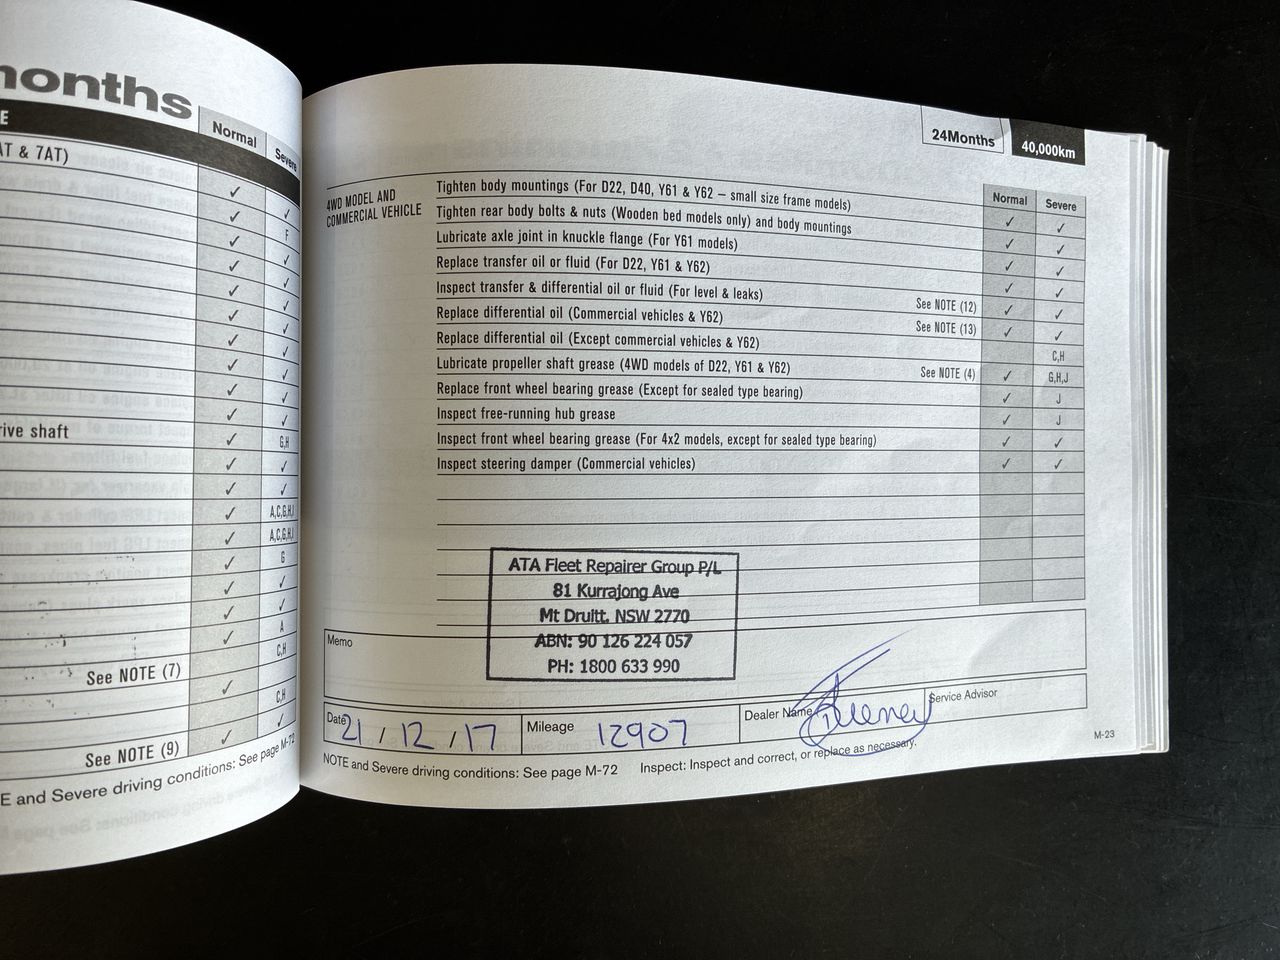 months
E
Normal
Severe
AT & 7AT)
✓
✓ ✓
✓ F
✓ ✓
✓ ✓
✓ ✓
✓ ✓
✓ ✓
✓ ✓
✓ ✓
rive shaft ✓ G,H
✓ ✓
✓ ✓
✓ A,C,G,H,J
✓ A,C,G,H,J
✓ G
✓ ✓
✓ ✓
✓ A
See NOTE (7) C,H
✓
C,H
See NOTE (9) ✓ ✓
E and Severe driving conditions: See page M-72
24Months 40,000km
4WD MODEL AND
COMMERCIAL VEHICLE
Normal Severe
Tighten body mountings (For D22, D40, Y61 & Y62 – small size frame models) ✓ ✓
Tighten rear body bolts & nuts (Wooden bed models only) and body mountings ✓ ✓
Lubricate axle joint in knuckle flange (For Y61 models) ✓ ✓
Replace transfer oil or fluid (For D22, Y61 & Y62) ✓ ✓
Inspect transfer & differential oil or fluid (For level & leaks) See NOTE (12) ✓ ✓
Replace differential oil (Commercial vehicles & Y62) See NOTE (13) ✓ ✓
Replace differential oil (Except commercial vehicles & Y62) C,H
Lubricate propeller shaft grease (4WD models of D22, Y61 & Y62) See NOTE (4) ✓ G,H,J
Replace front wheel bearing grease (Except for sealed type bearing) ✓ J
Inspect free-running hub grease ✓ J
Inspect front wheel bearing grease (For 4x2 models, except for sealed type bearing) ✓ ✓
Inspect steering damper (Commercial vehicles) ✓ ✓
ATA Fleet Repairer Group P/L
81 Kurrajong Ave
Mt Druitt. NSW 2770
ABN: 90 126 224 057
PH: 1800 633 990
Memo
Date 21 / 12 / 17
Mileage 12907
Dealer Name
Service Advisor
NOTE and Severe driving conditions: See page M-72 Inspect: Inspect and correct, or replace as necessary.
M-23